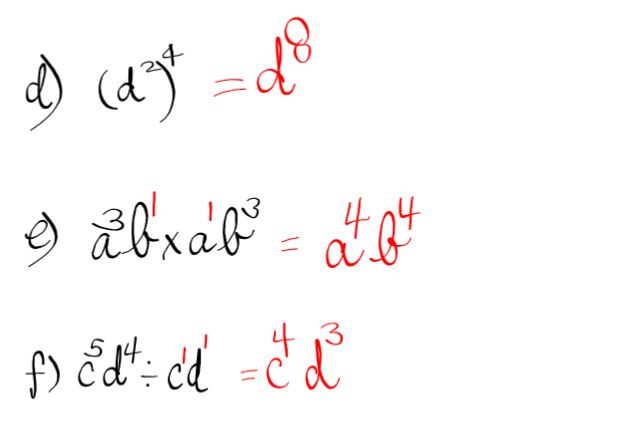 d) (d²)⁴ = d⁸
e) a³b¹ x a¹b³ = a⁴b⁴
f) c⁵d⁴ ÷ c¹d¹ = c⁴d³